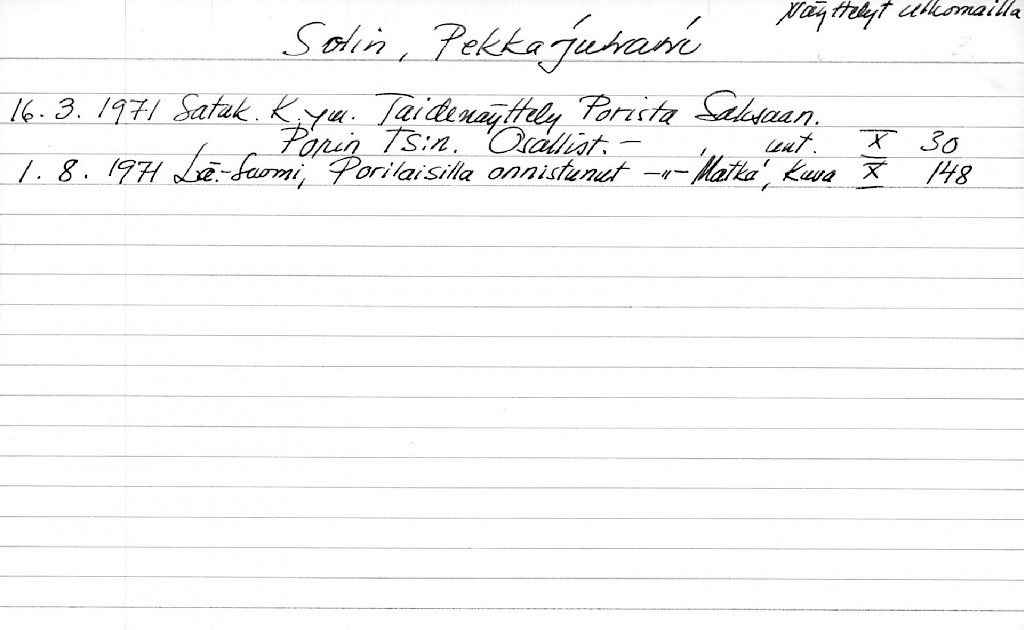 Näyttelyt ulkomailla
Solin, Pekka Juhani
16. 3. 1971 Satak. K. ym. Taidenäyttely Porista Saksaan.
Porin TS:n. Osallist. – , uut. X 30
1. 8. 1971 Lä.-Suomi, Porilaisilla onnistunut –"– Matka, Kuva X 148